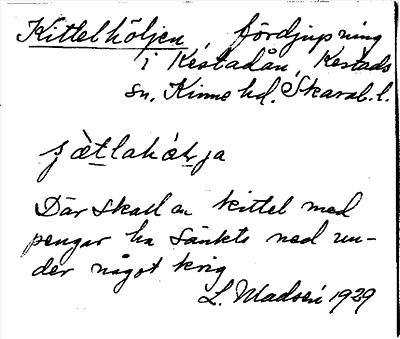 Kittelhöljen, fördjupning
i Kestadån, Kestads
sn, Kinne hd, Skarab. l.
Där skall en kittel med
pengar ha sänkts ned un-
der något krig
L. Madsén 1929